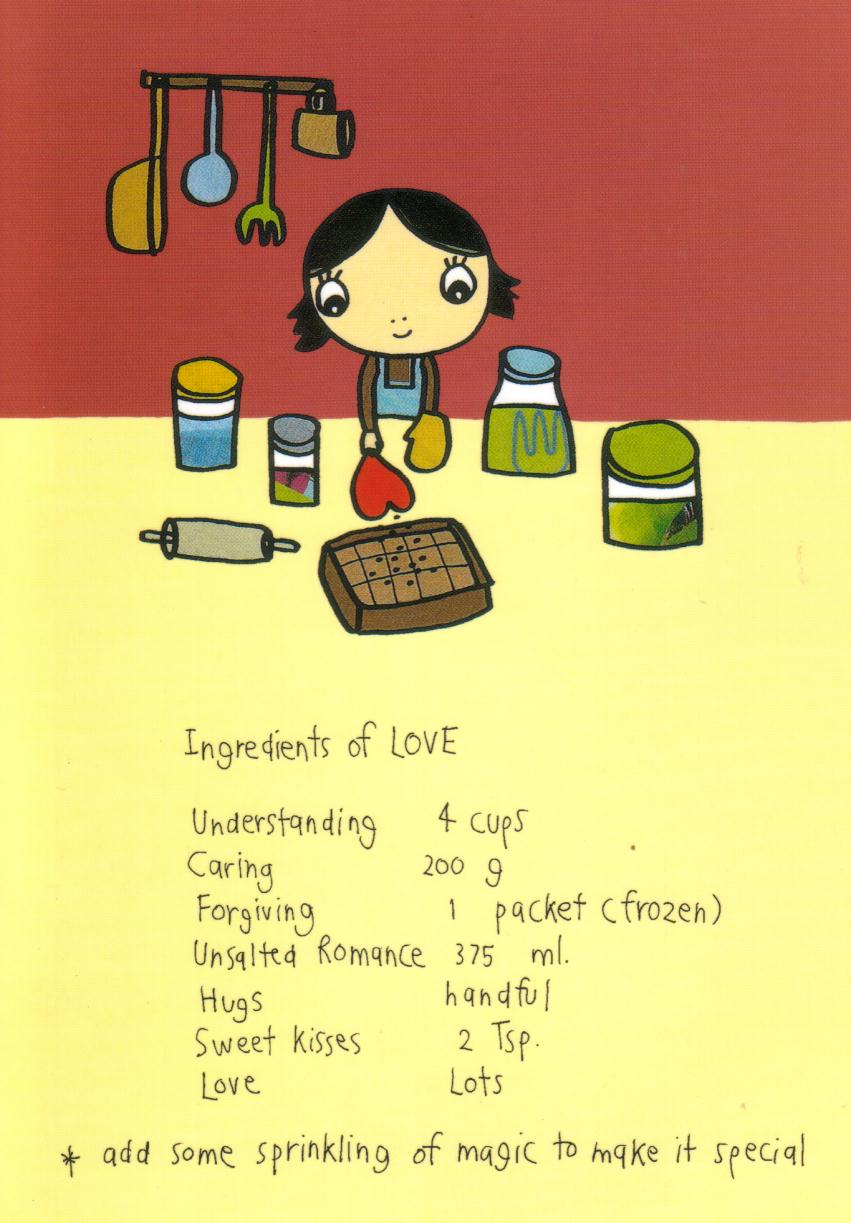 Ingredients of LOVE
Understanding 4 cups
Caring 200 g
Forgiving 1 packet (frozen)
Unsalted Romance 375 ml.
Hugs handful
Sweet kisses 2 Tsp.
Love Lots
* add some sprinkling of magic to make it special